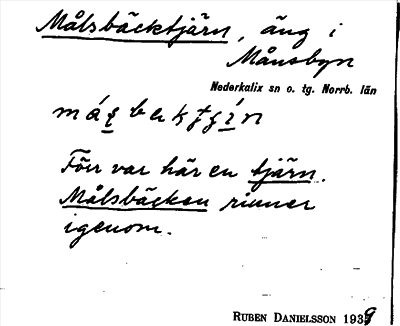 Målsbäcktjärn, äng i
Månsbyn
Nederkalix sn o. tg. Norrb. län
Förr var här en tjärn.
Målsbäcken rinner
igenom.
RUBEN DANIELSSON 1939